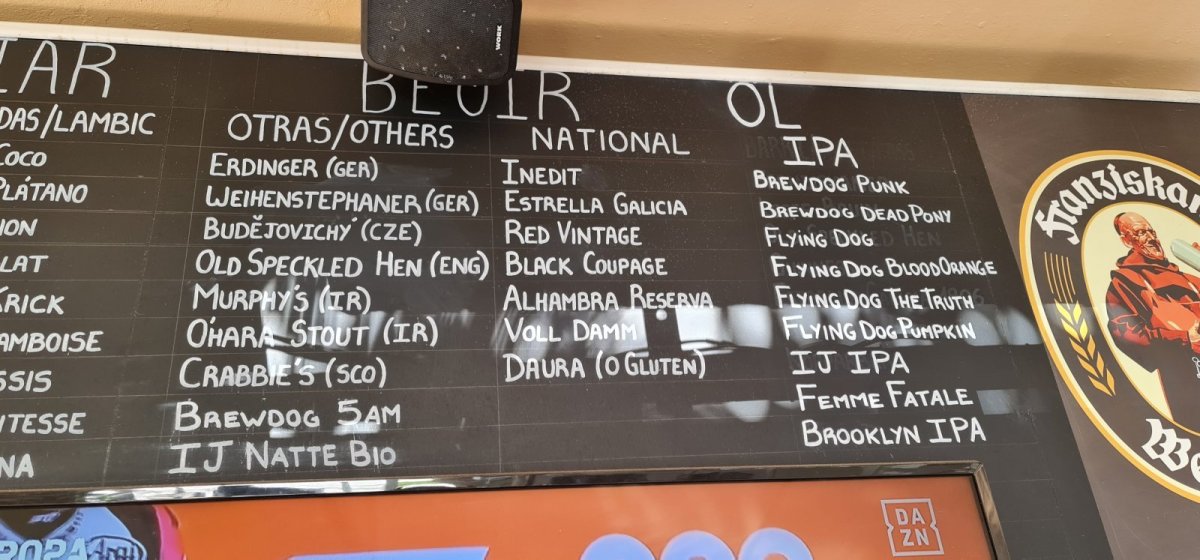 WORK
IAR
BEOIR
OL
DAS/LAMBIC
COCO
PLÁTANO
LAT
KRICK
AMBOISE
SSIS
ITESSE
NA
OTRAS/OTHERS
ERDINGER (GER)
WEIHENSTEPHANER (GER)
BUDĚJOVICHÝ (CZE)
OLD SPECKLED HEN (ENG)
MURPHY'S (IR)
O'HARA STOUT (IR)
CRABBIE'S (SCO)
BREWDOG 5AM
IJ NATTE BIO
NATIONAL
INEDIT
ESTRELLA GALICIA
RED VINTAGE
BLACK COUPAGE
ALHAMBRA RESERVA
VOLL DAMM
DAURA (0 GLUTEN)
IPA
BREWDOG PUNK
BREWDOG DEAD PONY
FLYING DOG
FLYING DOG BLOOD ORANGE
FLYING DOG THE TRUTH
FLYING DOG PUMPKIN
IJ IPA
FEMME FATALE
BROOKLYN IPA
Franziska
We
ROPA
DAZN